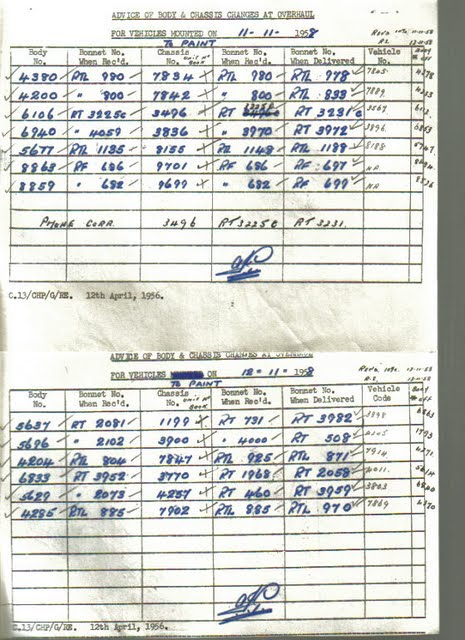 ADVICE OF BODY & CHASSIS CHANGES AT OVERHAUL
FOR VEHICLES MOUNTED ON 11-11- 1958
TO PAINT
Body No. Bonnet No. When Rec'd. Chassis No. Unit No Book Bonnet No. When Rec'd. Bonnet No. When Delivered Vehicle No. Body off
4380 RTL 980 7834 RTL 980 RTL 978 7805
4200 " 800 7842 " 800 RTL 833 7889
6106 RT 3225C 3496 RT 3225C RT 3231C 3567
6940 " 4059 3836 " 3970 RT 3972 3896
5677 RTL 1135 8155 RTL 1148 RTL 1188 8188
8863 RF 686 9701 RF 686 RF 697 NA
8859 " 682 9699 " 682 RF 699 NA
PHONE CORR. 3496 RT 3225C RT 3231.
C.13/CHP/G/RE. 12th April, 1956.
ADVICE OF BODY & CHASSIS CHANGES AT OVERHAUL
FOR VEHICLES ON 12-11- 1958
TO PAINT
Body No. Bonnet No. When Rec'd. Chassis No. Unit No Book Bonnet No. When Rec'd. Bonnet No. When Delivered Vehicle Code Body off
5637 RT 2081 1199 RT 731 RT 3982 3898
5696 " 2102 3900 " 4000 RT 508
4204 RTL 804 7847 RTL 925 RTL 871 7914
6833 RT 3952 3770 RT 1968 RT 2058 4011
5629 " 2073 4257 RT 460 RT 3959 3803
4285 RTL 885 7902 RTL 885 RTL 970 7869
C.13/CHP/G/RE. 12th April, 1956.